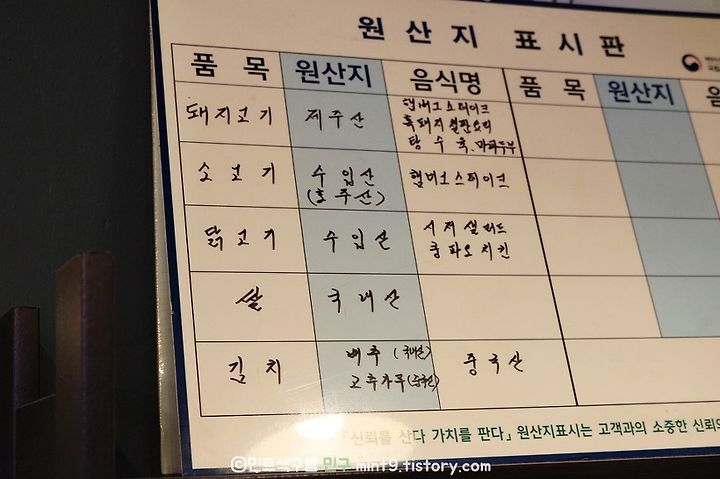 원산지 표시판
품목 원산지 음식명 품목 원산지 음
돼지고기 제주산 햄버그스테이크
흑돼지철판요리
탕수육, 마파두부
소고기 수입산 햄버그스테이크
(호주산)
닭고기 수입산 시저샐러드
쿵파오치킨
쌀 국내산
김치 배추 (국내산) 중국산
고추가루(중국산)
「신뢰를 산다 가치를 판다」 원산지표시는 고객과의 소중한 신뢰의
ⓒ민트색구름 민구 mint9.tistory.com